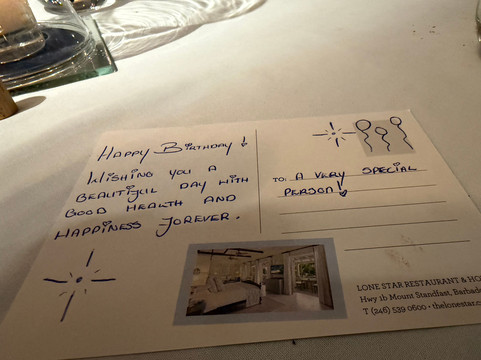 Happy Birthday!
Wishing you a
beautiful day with
good health and
happiness forever.
TO: A very special
person!
LONE STAR RESTAURANT & HO
Hwy 1b Mount Standfast, Barbad
T (246) 539 0600 • thelonestar.c